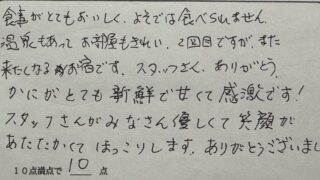 食事がとてもおいしく、よそでは食べられません。
温泉もあって お部屋もきれい。2回目ですが、また
来たくなるお宿です。スタッフさん、ありがとう。
かにがとても新鮮で甘くて感激です！
スタッフさんがみなさん優しくて笑顔が
あたたかくてほっこりします。ありがとうございまし
10点満点で 10 点